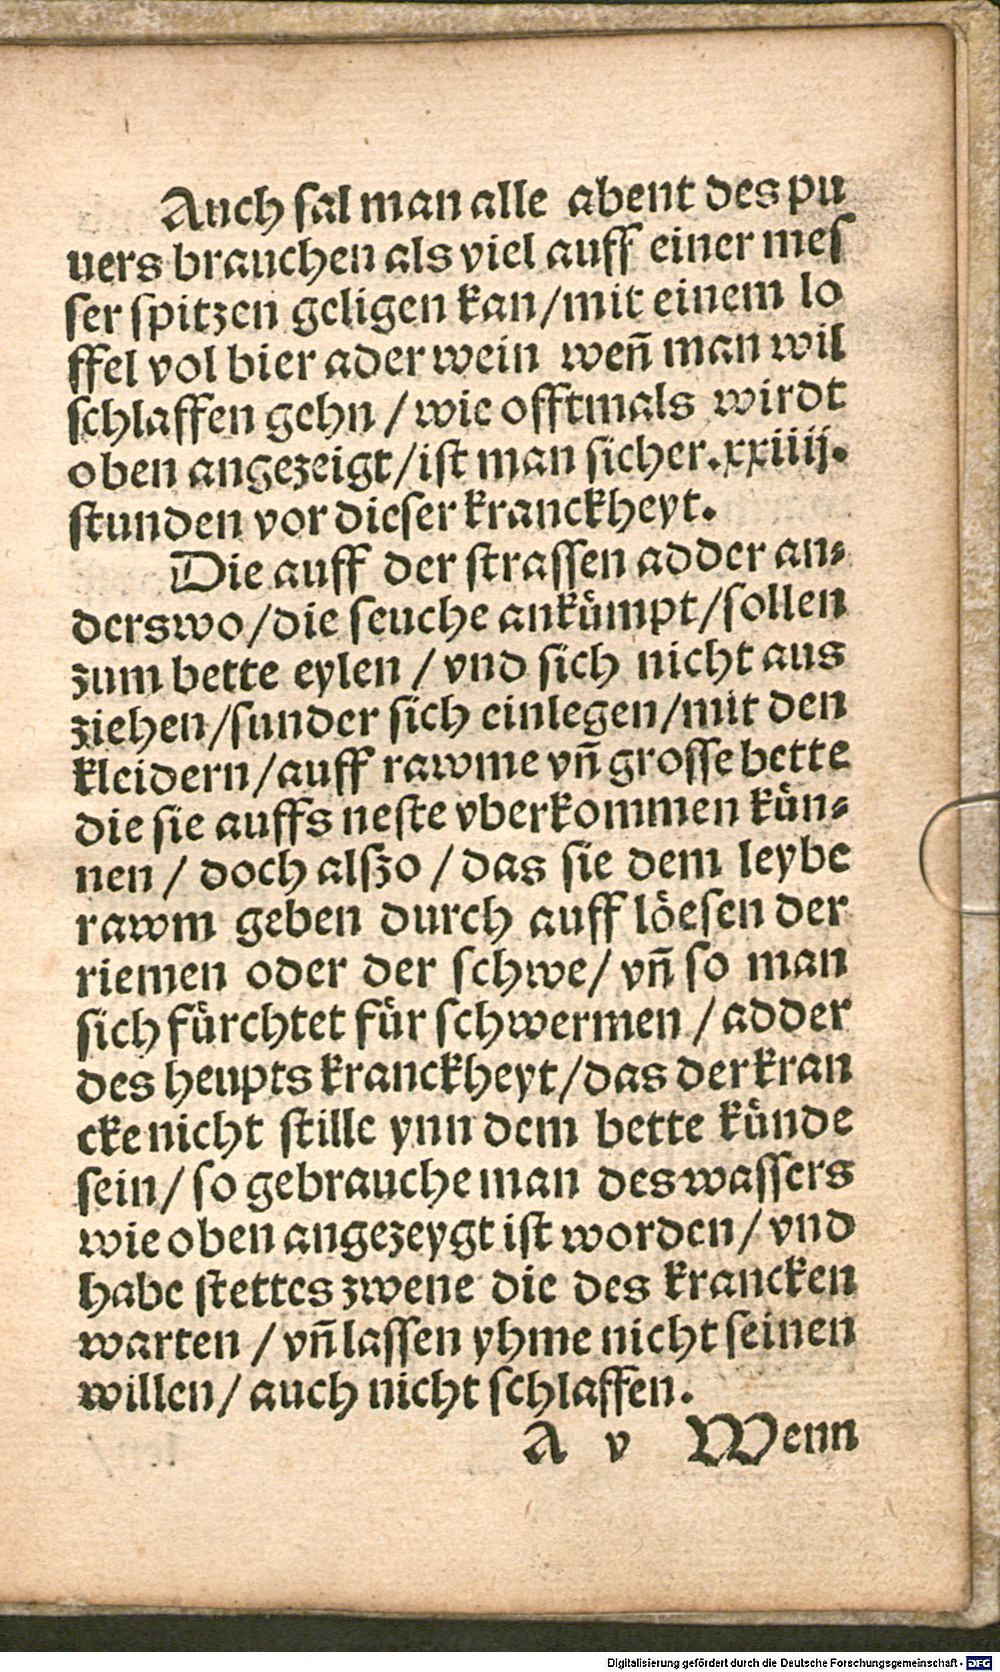 Auch sal man alle abent des pu
uers brauchen als viel auff einer mes
ser spitzen geligen kan/mit einem lo
ffel vol bier ader wein wen̄ man wil
schlaffen gehn / wie offtmals wirdt
oben angezeigt/ist man sicher.xxiiij.
stunden vor dieser kranckheyt.
Die auff der strassen adder an⸗
derswo/die seuche ankuͤmpt/sollen
zum bette eylen / vnd sich nicht aus
ziehen/sunder sich einlegen/mit den
kleidern/auff rawme vn̄ grosse bette
die sie auffs neste vberkommen kuͤn⸗
nen / doch alszo / das sie dem leybe
rawm geben durch auff loͤesen der
riemen oder der schwe/ vn̄ so man
sich fuͤrchtet fuͤr schwermen / adder
des heupts kranckheyt/das der kran
cke nicht stille ynn dem bette kuͤnde
sein/ so gebrauche man des wassers
wie oben angezeygt ist worden/ vnd
habe stettes zwene die des krancken
warten / vn̄ lassen yhme nicht seinen
willen/ auch nicht schlaffen.
A v Wenn
Digitalisierung gefördert durch die Deutsche Forschungsgemeinschaft - DFG